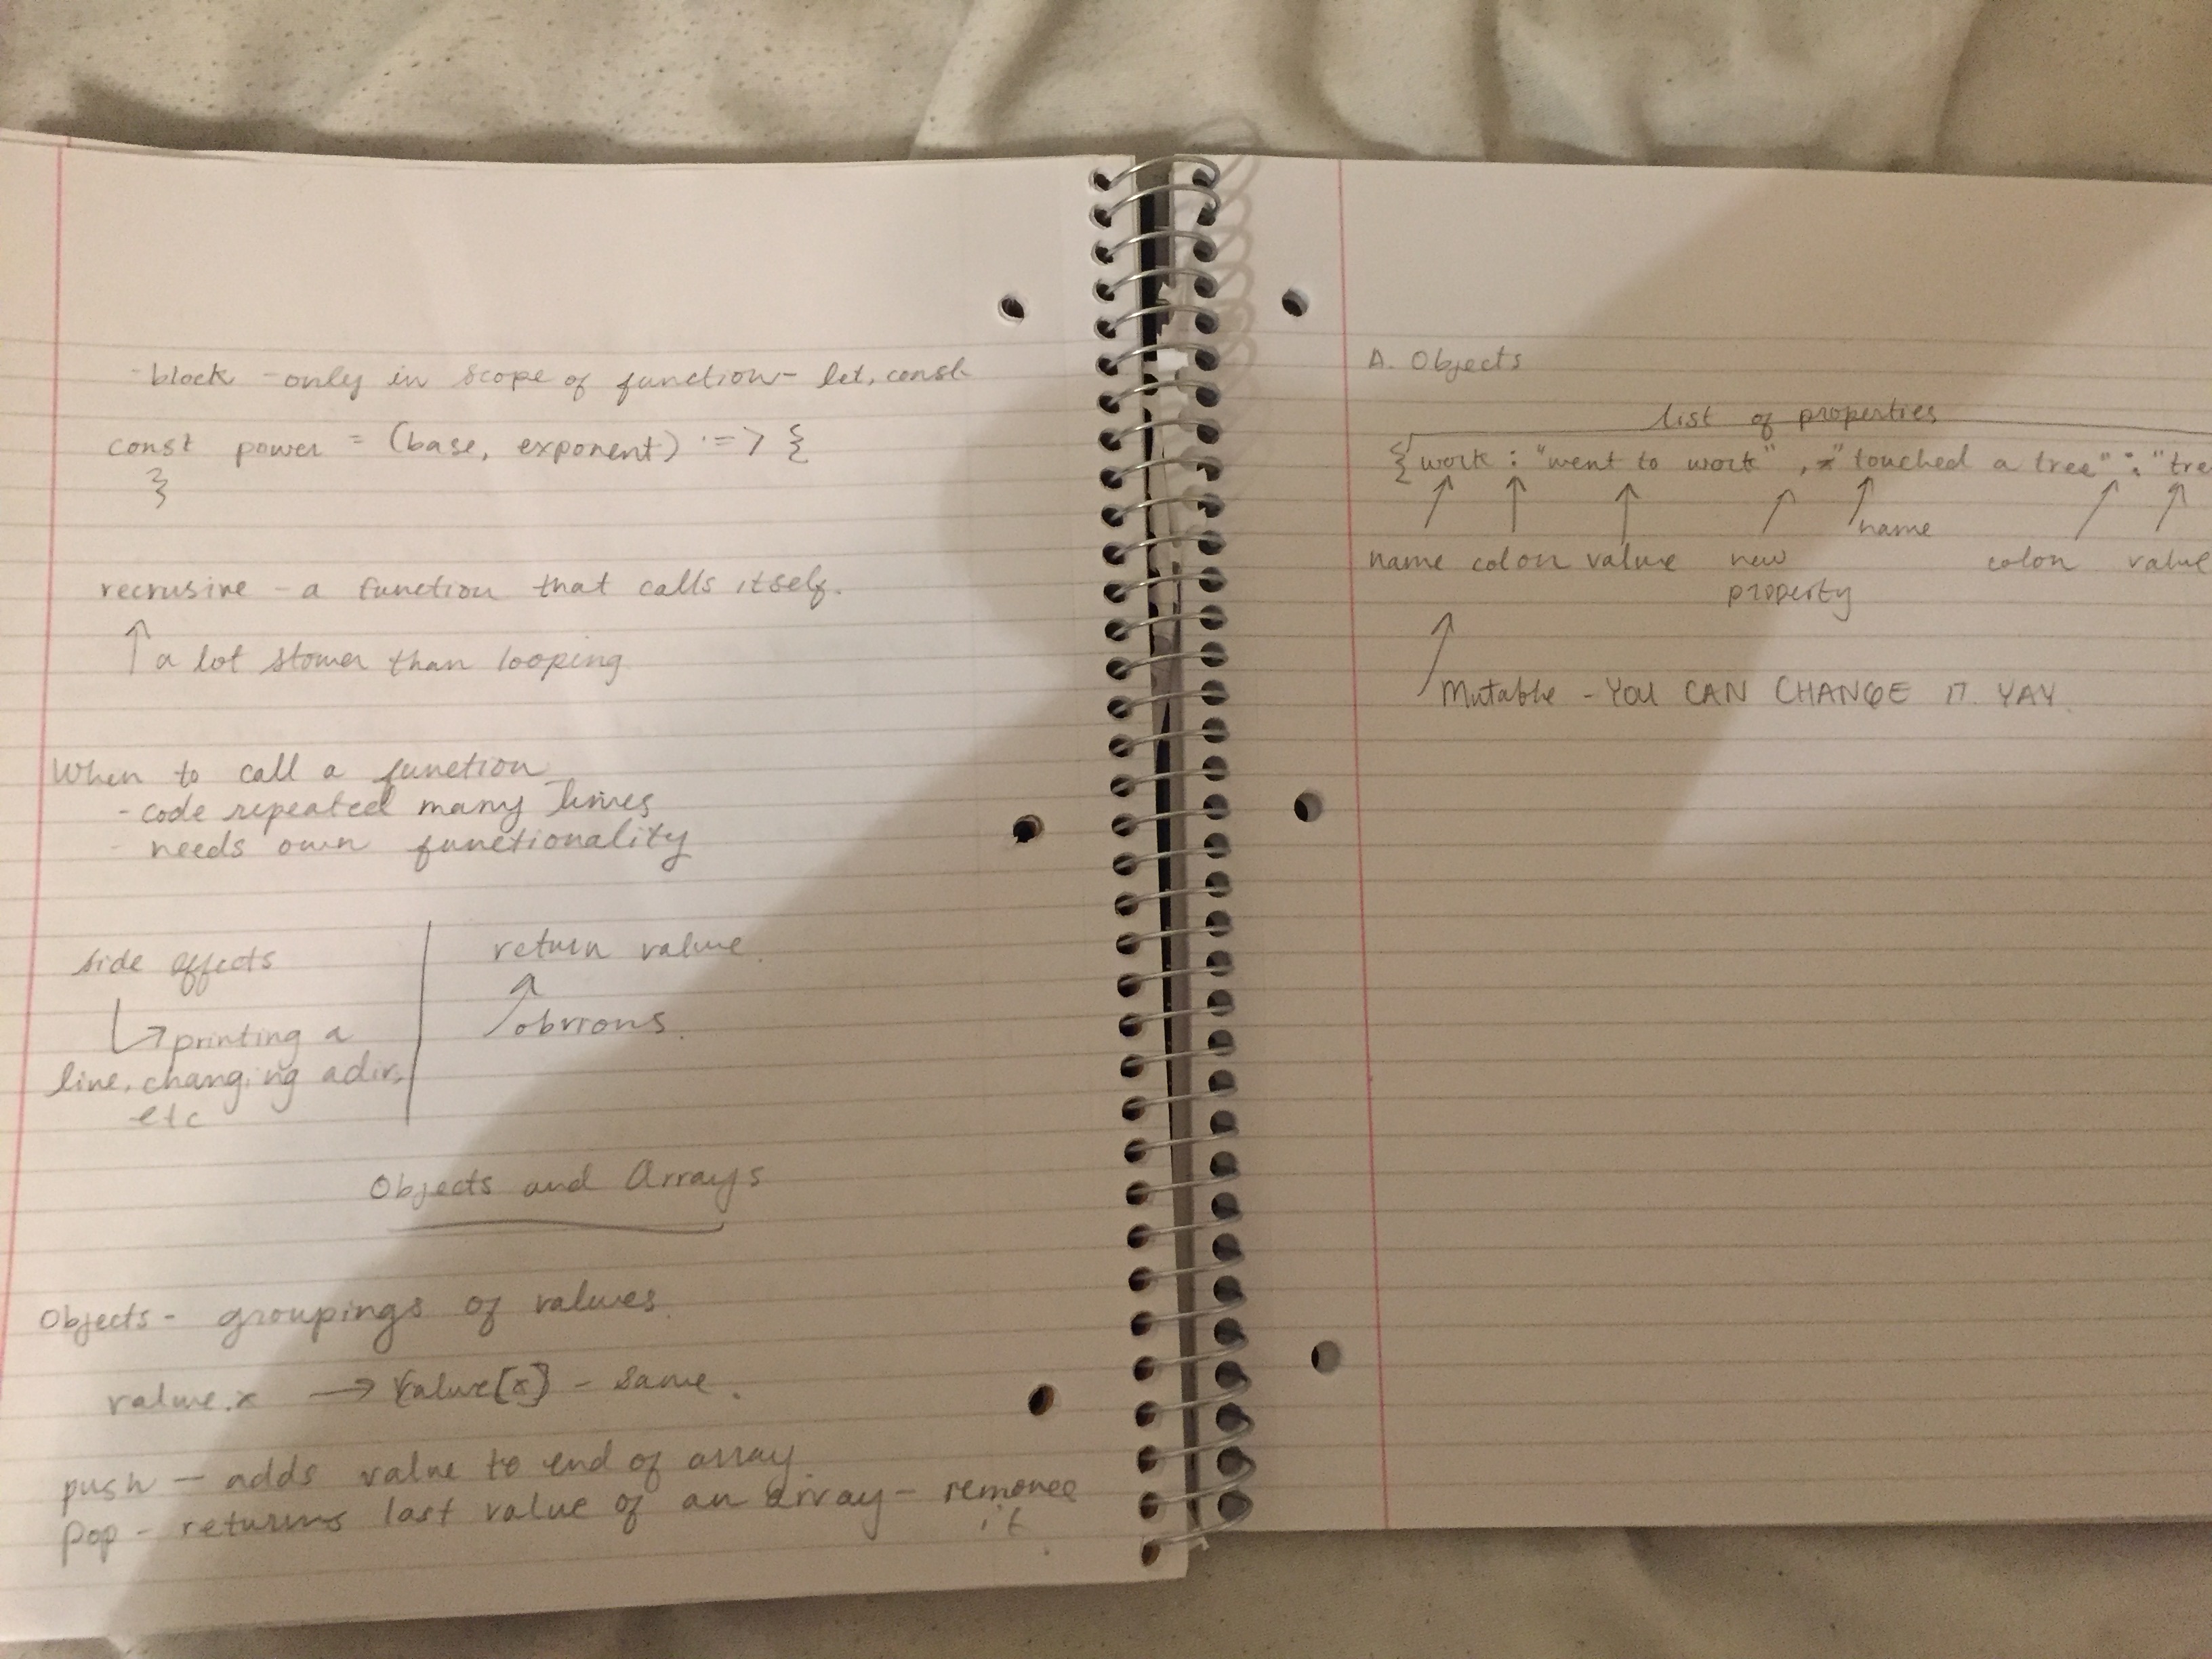 - block - only in scope of function - let, const
const power = (base, exponent) => {
}
recrusive - a function that calls itself.
↑ a lot slower than looping
When to call a function
- code repeated many times
- needs own functionality
side effects
return value
↳ printing a
line, changing a dir,
etc
obvious.
Objects and Arrays
Objects - groupings of values.
value.x → value[x] - same.
push - adds value to end of array
pop - returns last value of an array - removes
it
A. Objects
list of properties
{work: "went to work", "touched a tree": "tree
name colon value new
property
name
colon value
Mutable - YOU CAN CHANGE IT YAY